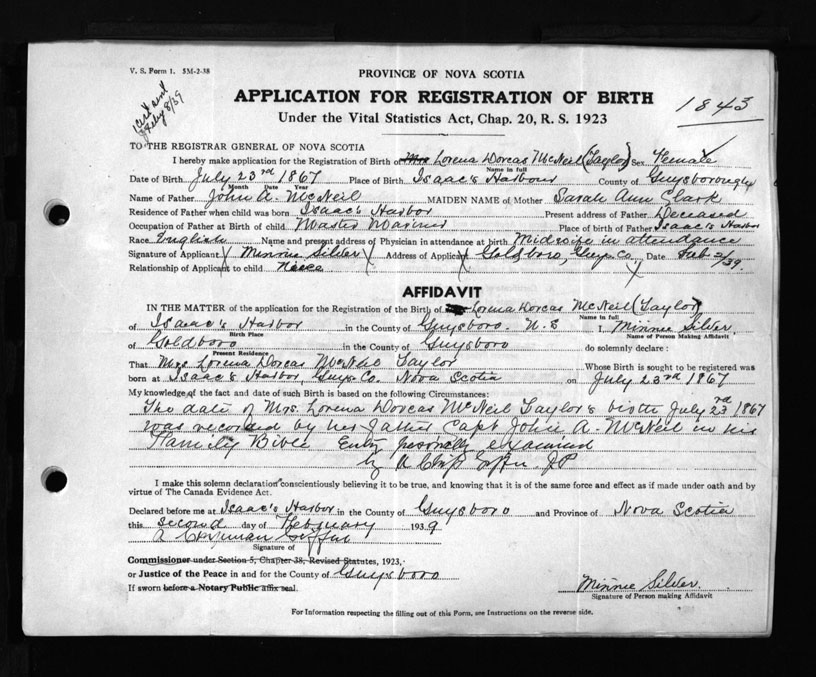 V. S. Form 1. 5M-2-38
PROVINCE OF NOVA SCOTIA
APPLICATION FOR REGISTRATION OF BIRTH
Under the Vital Statistics Act, Chap. 20, R. S. 1923
1843
TO THE REGISTRAR GENERAL OF NOVA SCOTIA
I hereby make application for the Registration of Birth of Mrs Lorena Dorcas McNeil (Taylor) Sex Female
Name in full
Date of Birth July 23rd 1867 Place of Birth Isaac's Harbour County of Guysborough
Month Date Year
Name of Father John A. McNeil MAIDEN NAME of Mother Sarah Ann Clark
Residence of Father when child was born Isaac's Harbor Present address of Father Deceased
Occupation of Father at Birth of child Master Mariner Place of birth of Father Isaac's Harbor
Race English Name and present address of Physician in attendance at birth Midwife in attendance
Signature of Applicant Minnie Silver Address of Applicant Goldboro, Guys. Co. Date Feb 2/39.
Relationship of Applicant to child Niece
AFFIDAVIT
IN THE MATTER of the application for the Registration of the Birth of Lorena Dorcas McNeil (Taylor)
Name in full
of Isaac's Harbor in the County of Guysboro. N.S I, Minnie Silver
Birth Place Name of Person Making Affidavit
of Goldboro in the County of Guysboro do solemnly declare:
Present Residence
That Mrs Lorena Dorcas McNeil Taylor Whose Birth is sought to be registered was
born at Isaac's Harbor, Guys. Co. Nova Scotia on July 23rd 1867
My knowledge of the fact and date of such Birth is based on the following Circumstances:
The date of Mrs. Lorena Dorcas McNeil Taylor's birth July 23rd 1867
was recorded by her father Capt John A. McNeil in his
Family Bible Entry personally examined
by A JP
I make this solemn declaration conscientiously believing it to be true, and knowing that it is of the same force and effect as if made under oath and by
virtue of The Canada Evidence Act.
Declared before me at Isaac's Harbor in the County of Guysboro and Province of Nova Scotia
this second day of February 1939
A Giffin
Signature of
Commissioner under Section 5, Chapter 38, Revised Statutes, 1923,
or Justice of the Peace in and for the County of Guysboro
If sworn before a Notary Public affix seal.
Minnie Silver.
Signature of Person making Affidavit
For Information respecting the filling out of this Form, see Instructions on the reverse side.